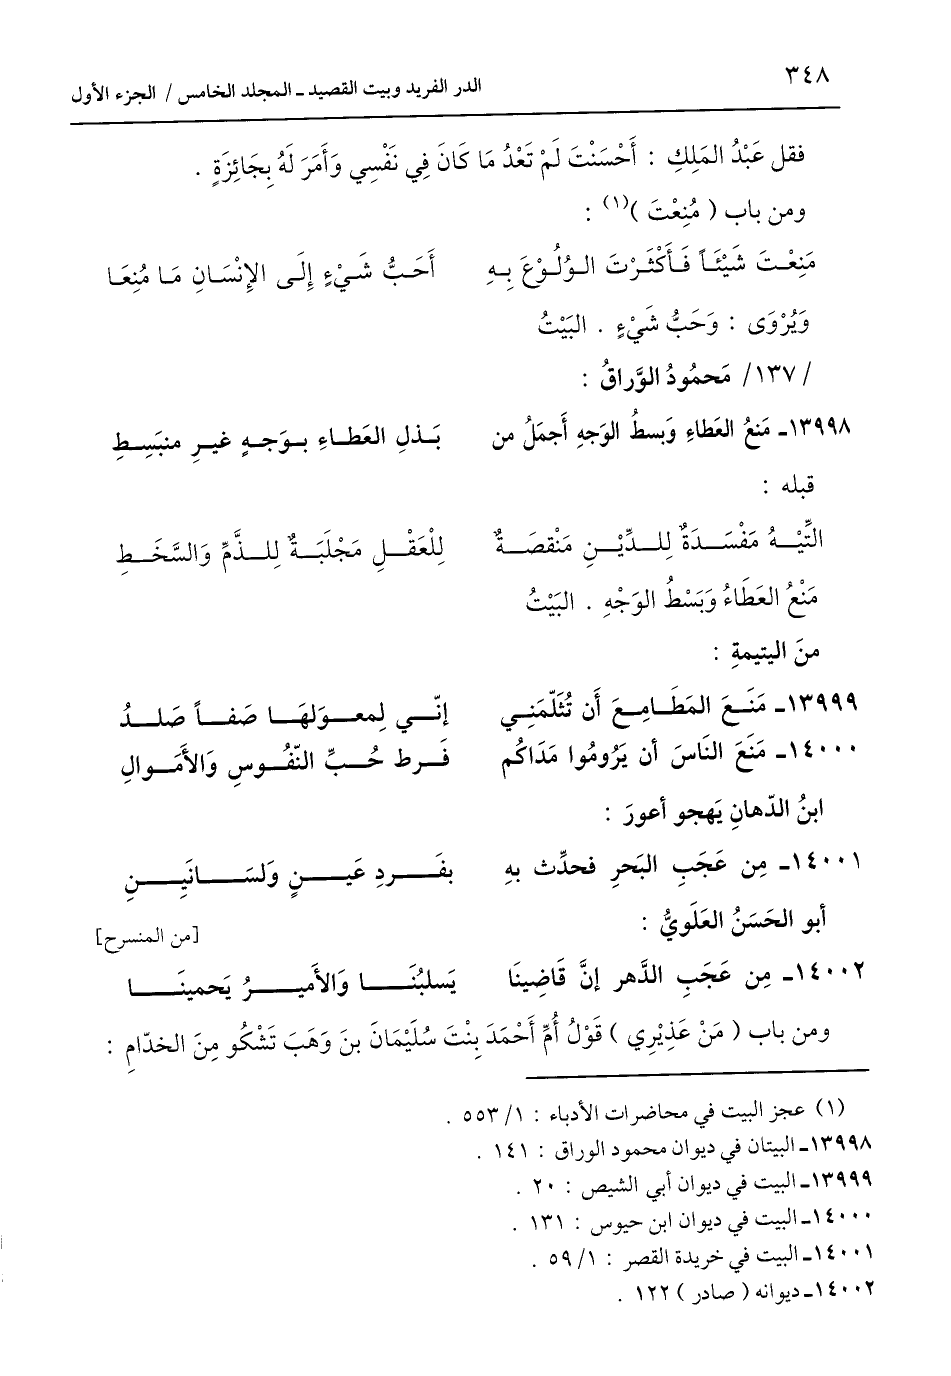 ٣٤٨
الدر الفريد وبيت القصيد ـ المجلد الخامس / الجزء الأول
فقل عَبْدُ المَلِكِ : أَحْسَنْتَ لَمْ تَعْدُ مَا كَانَ فِي نَفْسِي وَأَمَرَ لَهُ بِجَائِزَةٍ .
ومن باب ( مُنِعْتَ )(١) :
مَنِعْتَ شَيْئَاً فَأَكْثَرْتَ الوُلُوْعَ بِهِ أَحَبُّ شَيْءٍ إِلَى الإِنْسَانِ مَا مُنِعَا
وَيُرْوَى : وَحَبُّ شَيْءٍ . البَيْتُ
/١٣٧/ مَحمُودُ الوَّراقُ :
١٣٩٩٨ـ مَنعُ العَطاءِ وَبسطُ الوَجهِ أَجمَلُ من بَذلِ العَطاءِ بوَجهٍ غيرِ منبَسِطِ
قبله :
التِّيْهُ مَفْسَدَةٌ لِلدِّيْنِ مَنْقصَةٌ لِلْعَقْلِ مَجْلَبَةٌ لِلذَّمِّ وَالسَّخَطِ
مَنْعُ العَطَاءُ وَبَسْطُ الوَجْهِ . البَيْتُ
منَ اليتيمةِ :
١٣٩٩٩ـ مَنَعَ المَطَامِعَ أَن تُثَلّمَنِي إنّي لِمعوَلهَا صَفاً صَلدُ
١٤٠٠٠ـ مَنَعَ النَاسَ أن يَرُومُوا مَدَاكُم فَرط حُبِّ النّفُوسِ وَالأَموالِ
ابنُ الدّهانِ يَهجو أعورَ :
١٤٠٠١ـ مِن عَجَبِ البَحرِ فحدِّث بهِ بفَردِ عَينٍ وَلسَانَينِ
أبو الحَسَنُ العَلَويُّ :
[من المنسرح]
١٤٠٠٢ـ مِن عَجَبِ الدَّهر إنَّ قَاضِينَا يَسلبُنَا وَالأَميرُ يَحمينَا
ومن باب ( مَنْ عَذِيْرِي ) قَوْلُ أُمِّ أَحْمَدَ بِنْتَ سُلَيْمَانَ بنَ وَهَبَ تَشْكُو مِنَ الخدّامِ :
(١) عجز البيت في محاضرات الأدباء : ١/ ٥٥٣ .
١٣٩٩٨ـ البيتان في ديوان محمود الوراق : ١٤١ .
١٣٩٩٩ـ البيت في ديوان أبي الشيص : ٢٠ .
١٤٠٠٠ـ البيت في ديوان ابن حيوس : ١٣١ .
١٤٠٠١ـ البيت في خريدة القصر : ١/ ٥٩ .
١٤٠٠٢ـ ديوانه ( صادر ) ١٢٢ .